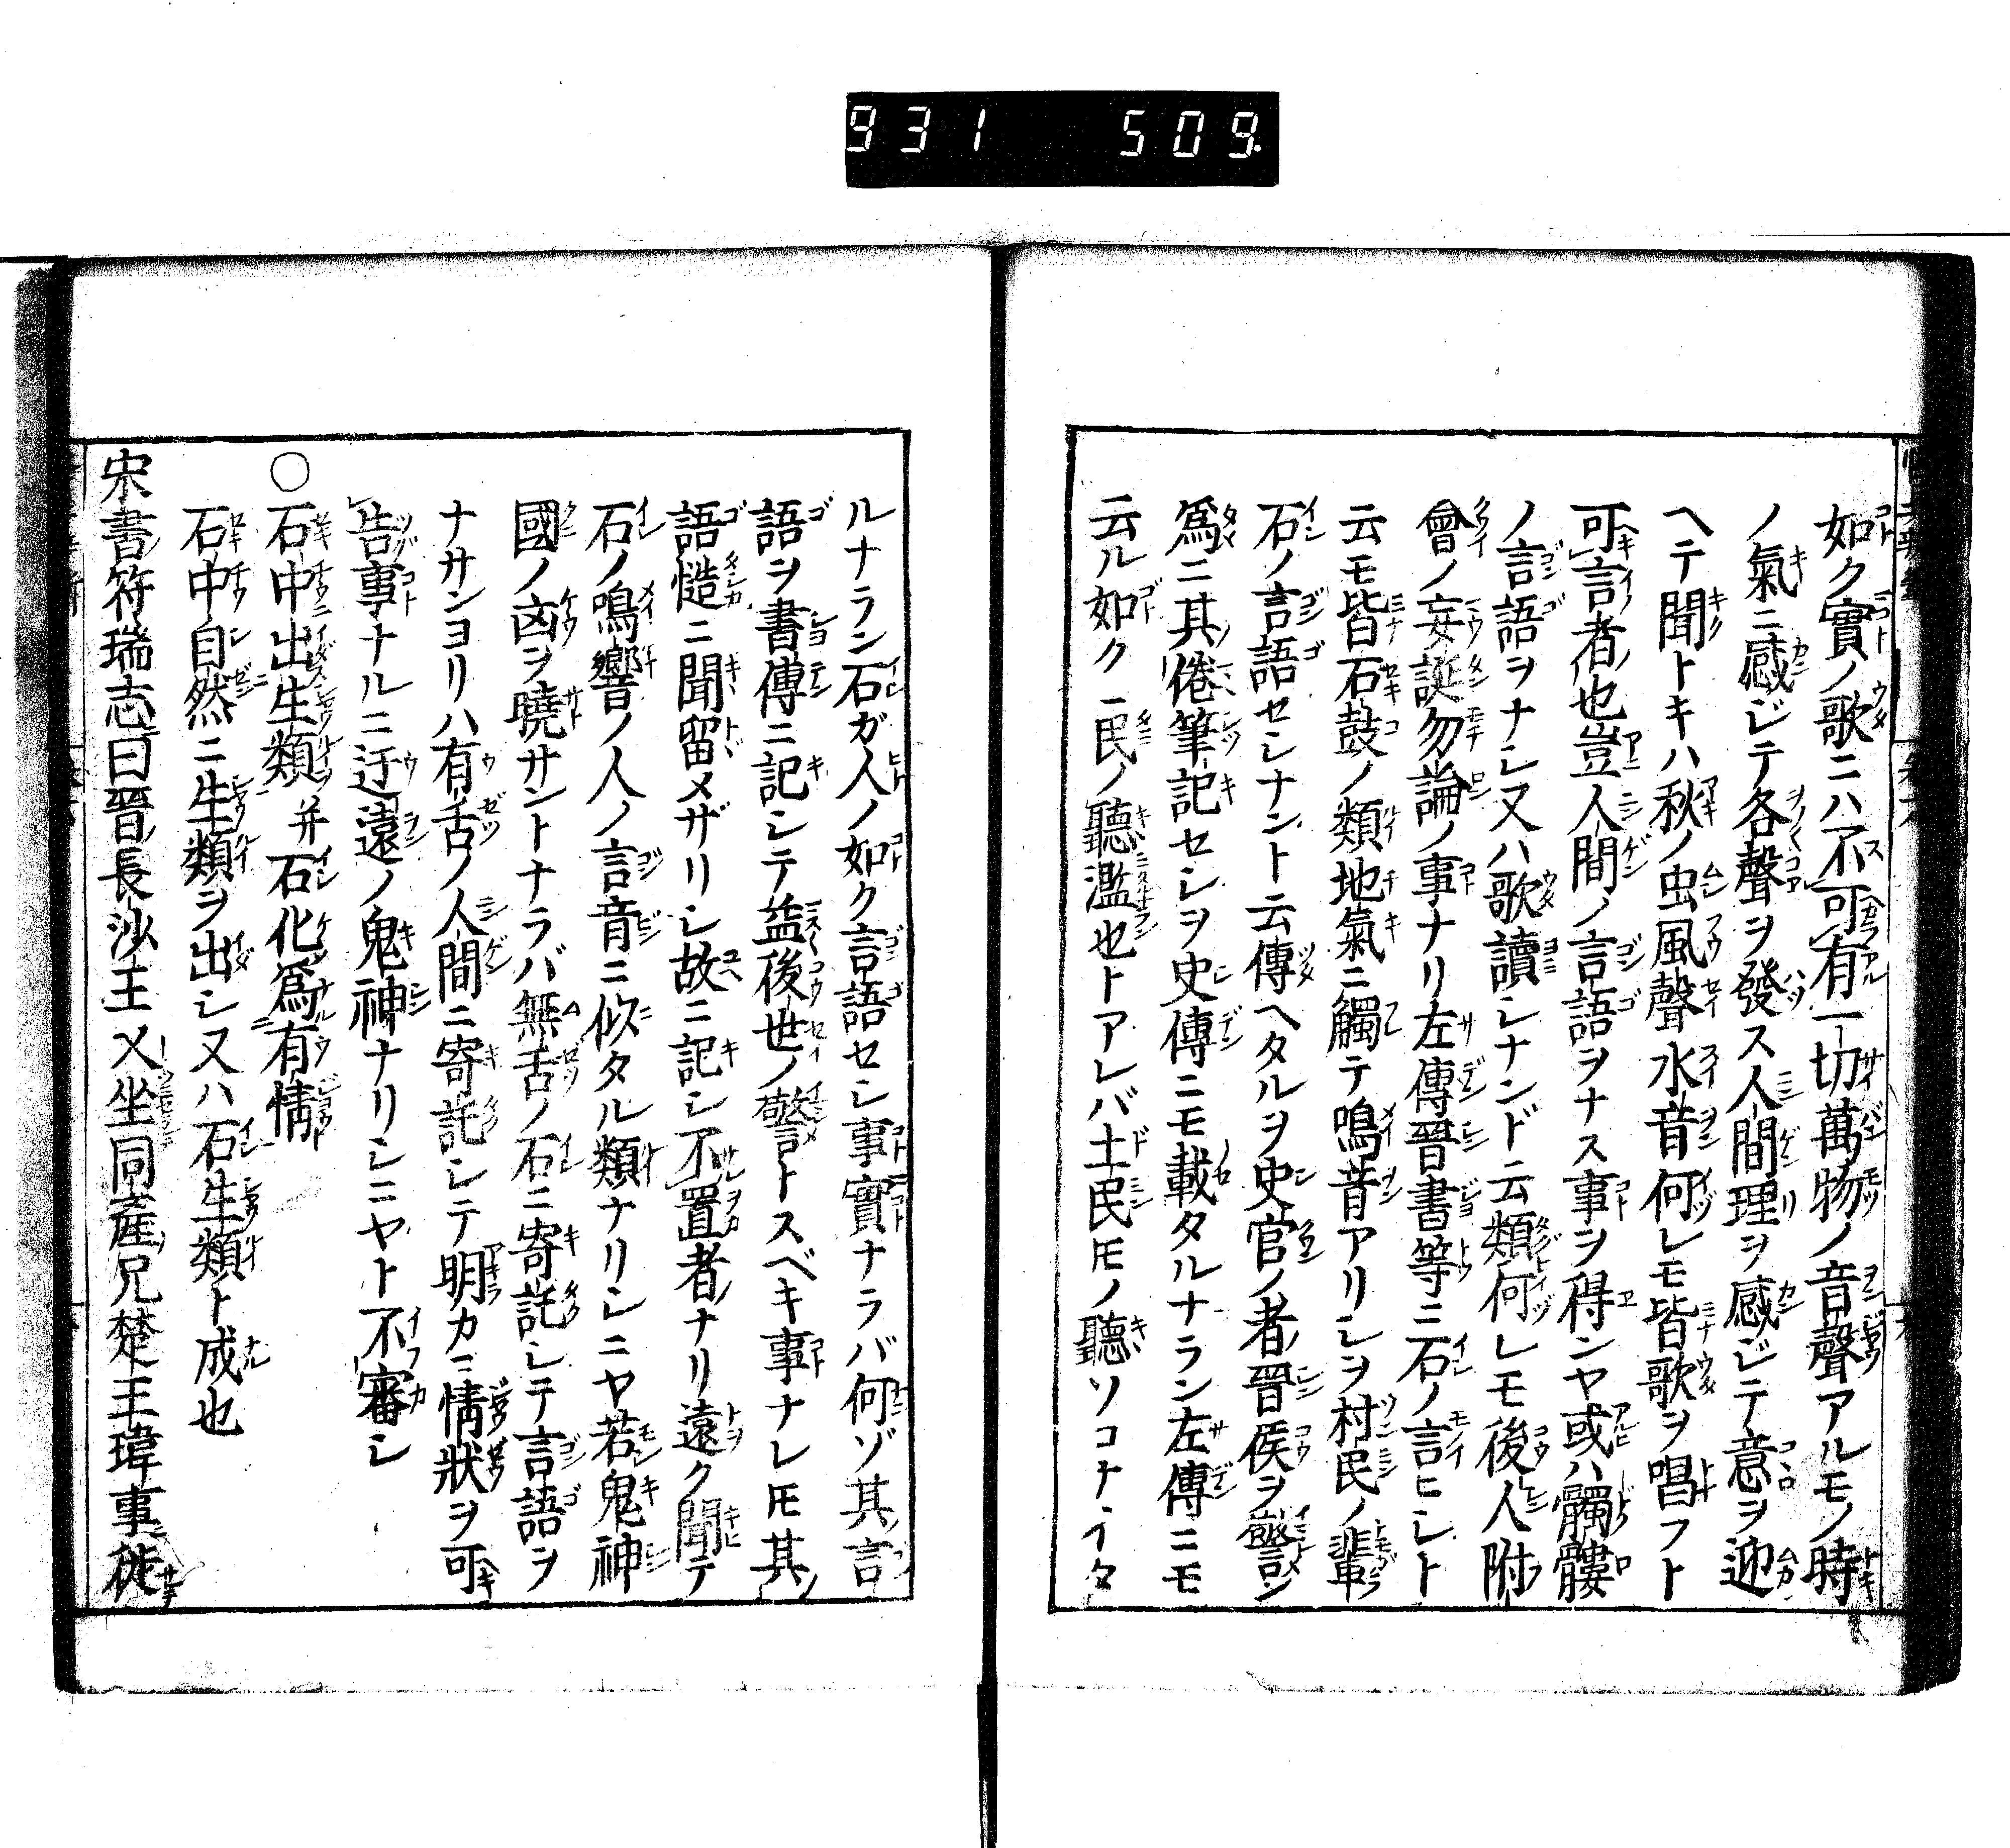 931 509
如ク實ノ歌ニハ不可有一切萬物ノ音聲アルモノ時
ノ氣ニ感ジテ各聲ヲ發ス人間理ヲ感ジテ意ヲ迎
ヘテ聞トキハ秋ノ虫風聲水音何レモ皆歌ヲ唱フト
可言者也豈人間ノ言語ヲナス事ヲ得ンヤ或ハ髑髏
ノ言語ヲナシ又ハ歌讀シナンド云類何レモ後人附
會ノ妄誕勿論ノ事ナリ左傳晉書等ニ石ノ言ヒシト
云モ皆石鼓ノ類地氣ニ觸テ鳴音アリシヲ村民ノ輩
石ノ言語セシナント云傳ヘタルヲ史官ノ者晉侯ヲ警ン
爲ニ其倦筆記セシヲ史傳ニモ載タルナラン左傳ニモ
云ル如ク民ノ聽濫也トアレバ土民𪜈ノ聽ソコナイタ
ルナラン石ガ人ノ如ク言語セシ事實ナラバ何ゾ其言
語ヲ書傳ニ記シテ益後世ノ警トスベキ事ナレ𪜈其
語慥ニ聞留メザリシ故ニ記シ不置者ナリ遠ク聞テ
石ノ鳴響ノ人ノ言音ニ似タル類ナリシニヤ若鬼神
國ノ凶ヲ曉サントナラバ無舌ノ石ニ寄託シテ言語ヲ
ナサンヨリハ有舌ノ人間ニ寄託シテ明カニ情狀ヲ可
告事ナルニ迂遠ノ鬼神ナリシニヤト不審シ
〇石中出生類并石化爲有情
石中自然ニ生類ヲ出シ又ハ石生類ト成也
宋書符瑞志曰晉長沙王乂坐同産兄楚王瑋事徙